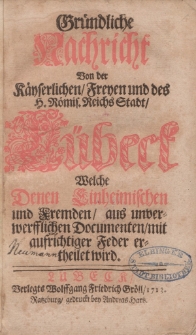 Gründliche
Nachricht
Von der
Käyserlichen/ Freyen und des
H. Römis. Reichs Stadt/
Lübeck
Welche
Denen Einheimischen
und Fremden/ aus unver-
werfflichen Documenten/ mit
auffrichtiger Feder er-
theilet wird.
Neumann
LUBECK
Verlegts Wolffgang Friedrich Gröll/
Ratzeburg/ gedruckt bey Andreas Hars.